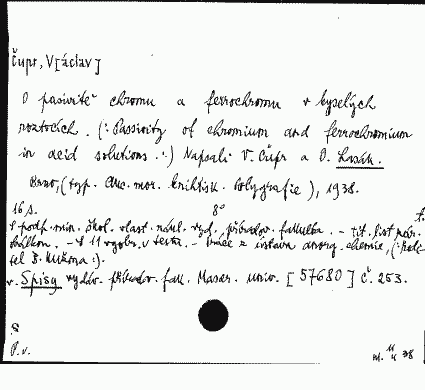 Čupr, V[áclav]
O pasivitě chromu a ferrochromu v kyselých
roztocích. (: Passivity of chromium and ferrochromium
in acid solutions. :) Napsali V. Čupr a O. Lasák.
Brno, (typ. Akc. mor. knihtisk. Polygrafie), 1938.
16 s. 8° t.
S podp. min. škol. vlast. nákl. vyd. přírodov. fakulta. - tit. list
- S 11 vyobr. v textu. - Práce z ústavu anorg. chemie,
tel B. Kužma :).
v. Spisy vydáv. přírodov. fak. Masar. univ. [57680] č. 253.
S.
P. v.
11
4 38